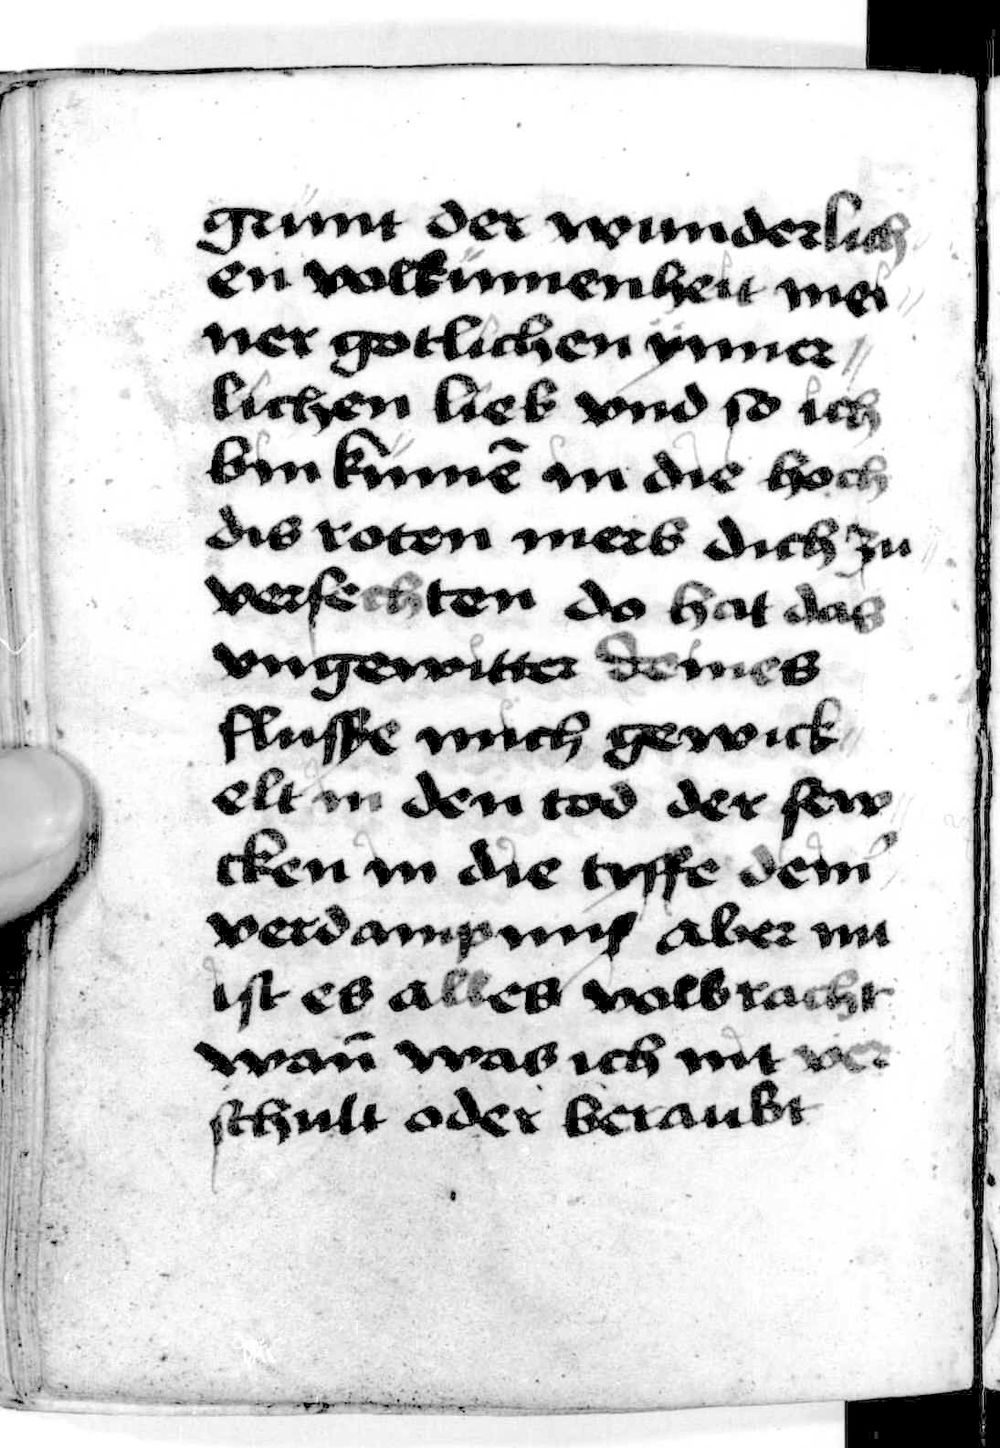 grünt der wunderlich
en volkümenheit mei
ner gotlichen ynner
lichen lieb vnd so ich
bin kümē in die hoch
dis roten mers dich zu
versechten do hat das
vngewitter deines
flusse mich gewick
elt in den tod der sew
cken in die tyffe deinʼ
verdampnuß aber nu
ist es alles volbracht
wan̄ was ich nit ver
schult oder beraubt